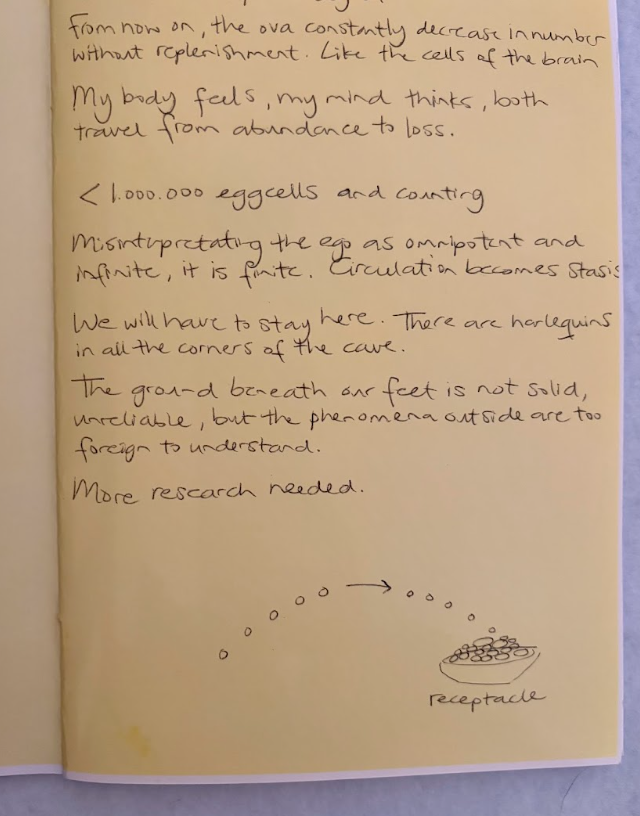 from now on, the ova constantly decrease in number
without replenishment. Like the cells of the brain
My body feels, my mind thinks, both
travel from abundance to loss.
< 1.000.000 eggcells and counting
Misinterpretating the ego as omnipotent and
infinite, it is finite. Circulation becomes stasis
We will have to stay here. There are harlequins
in all the corners of the cave.
The ground beneath our feet is not solid,
unreliable, but the phenomena outside are too
foreign to understand.
More research needed.
receptacle